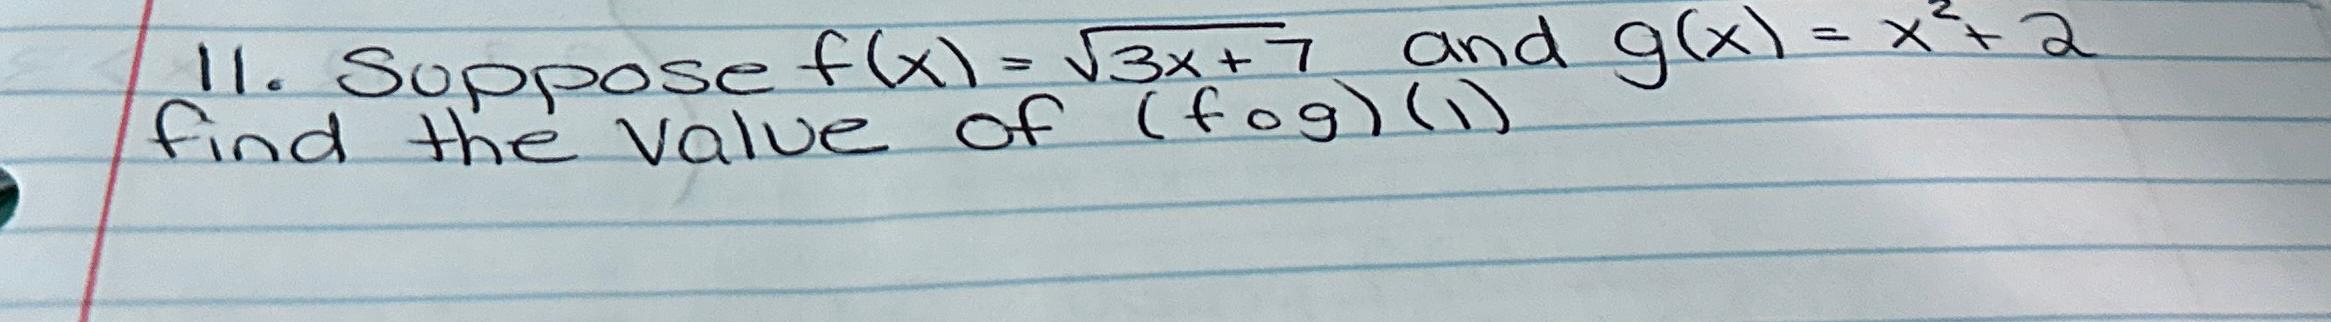 11. Suppose f(x) = √3x+7 and g(x) = x²+ 2
find the value of (fog)(1)